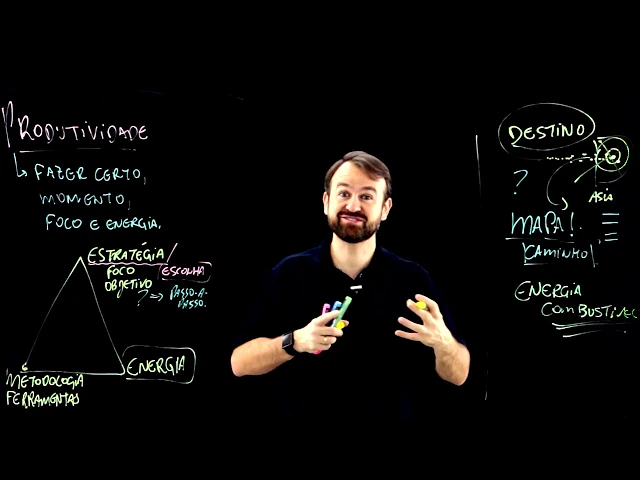 PRODUTIVIDADE
FAZER CERTO,
MOMENTO,
FOCO E ENERGIA.
ESTRATÉGIA /
FOCO ESCOLHA
OBJETIVO
? => PASSO-A-
PASSO.
ENERGIA
METODOLOGIA
FERRAMENTAS
DESTINO
?
ASIA
MAPA!
CAMINHO
ENERGIA
COMBUSTIVEL